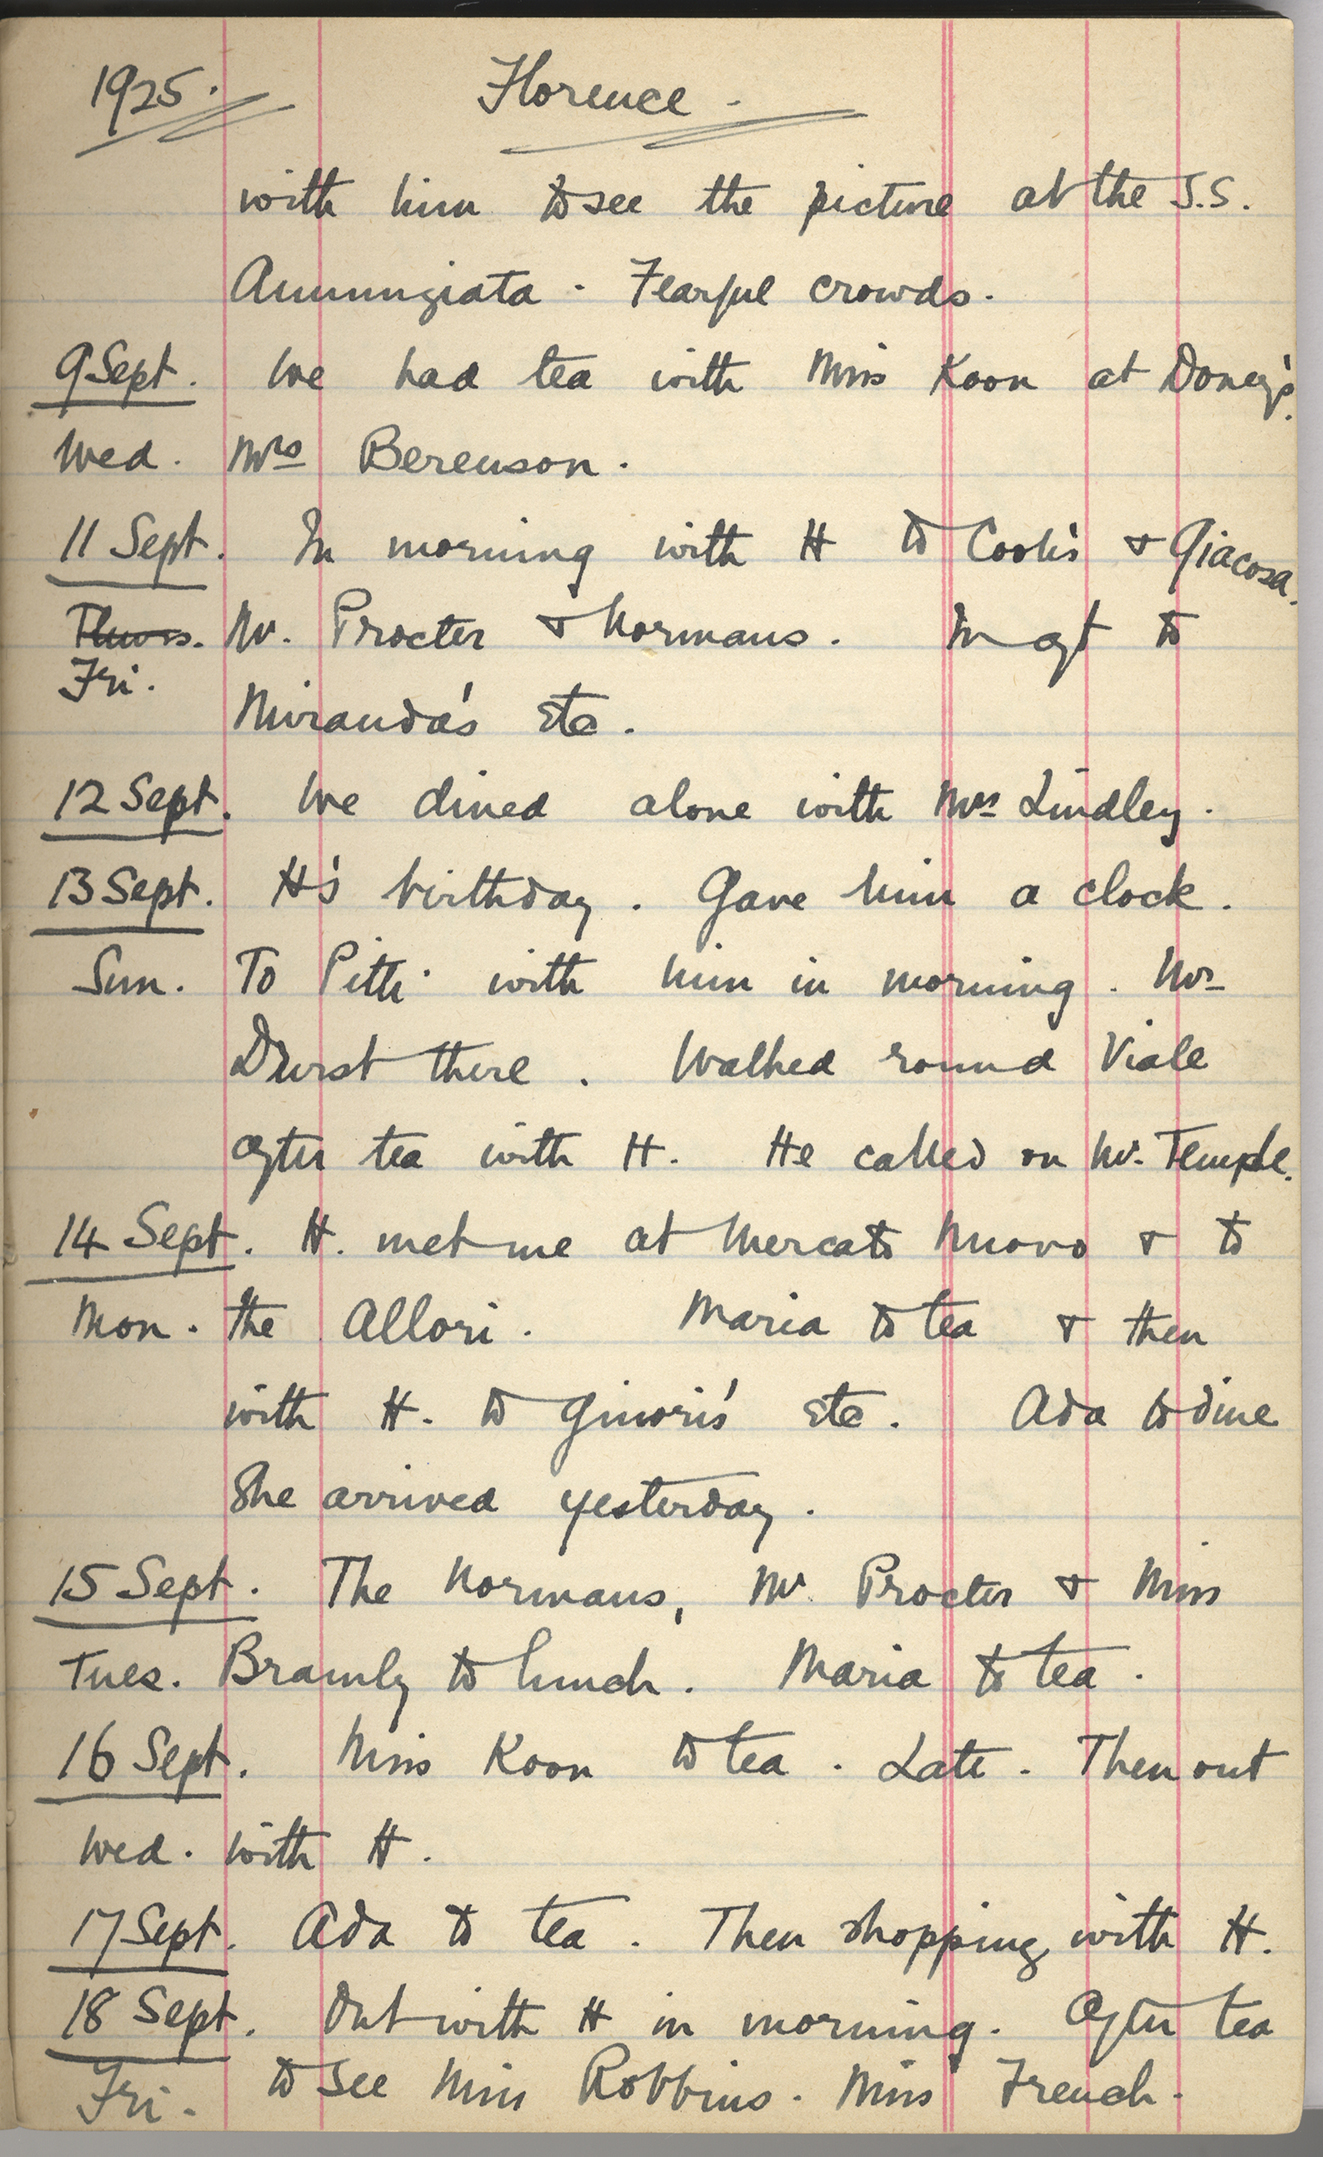 1925. Florence.
with him to see the picture at the S.S.
Annunziata. Fearful crowds.
9 Sept. We had tea with Miss Koon at Doney's.
Wed. Mrs Berenson.
11 Sept. In morning with H to Cook's & Giacosa.
Thurs. Mr. Procter & Normans. In aft to
Fri.
Miranda's etc.
12 Sept. We dined alone with Mrs Lindley.
13 Sept. H's birthday. Gave him a clock.
Sun. To Pitti with him in morning. Mr
Durst there. Walked round Viale
after tea with H. He called on Mr. Temple.
14 Sept. H. met me at Mercato Nuovo & to
Mon. the Allori. Maria to tea & then
with H. to Ginori's etc. Ada to dine
She arrived yesterday.
15 Sept. The Normans, Mr Procter & Miss
Tues. Bramly to lunch. Maria to tea.
16 Sept. Miss Koon to tea. Late. Then out
Wed. with H.
17 Sept. Ada to tea. Then shopping with H.
18 Sept. Out with H in morning. After tea
Fri. to see Miss Robbins. Miss French.